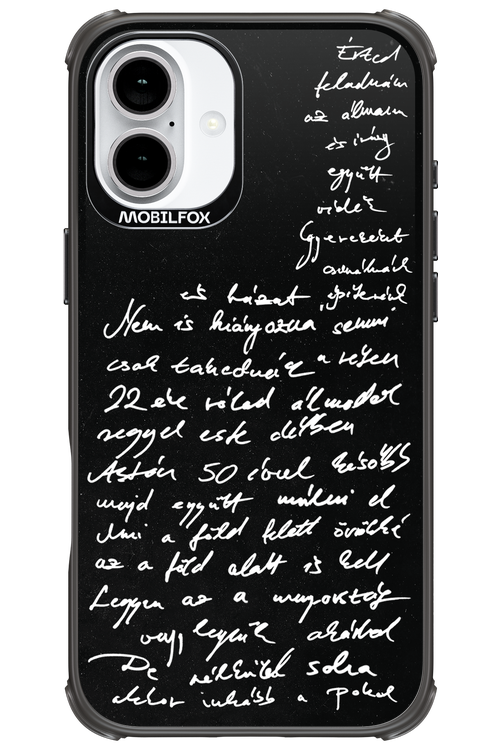 MOBILFOX
Érted
feladnám
az álmam
és így
együtt
vidék
Gyerekeint
csinálnák
és házat építenék
Nem is hiányozna semmi
csak takednék a réten
22 éve rólad álmodok
reggel este délben
Aztán 50 évvel később
majd együtt múlni el
Ami a föld felett örökké
az a föld alatt is kell
Legyen az a mennyország
vagy legyünk akárhol
De nélküled soha
akkor inkább a Pokol